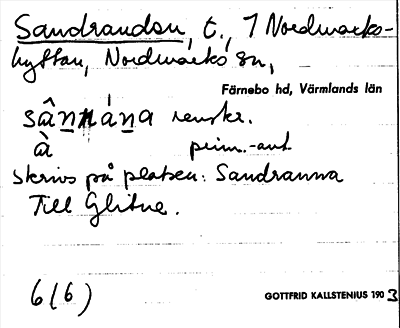 Sandrandan, t., 7 Nordmarks-
hyttan, Nordmarks sn,
Färnebo hd, Värmlands län
sân̲n̲án̲a renskr.
à prim.-ant
skrivs på platsen: Sandranna
Till Glitne.
6(6)
GOTTFRID KALLSTENIUS 1903